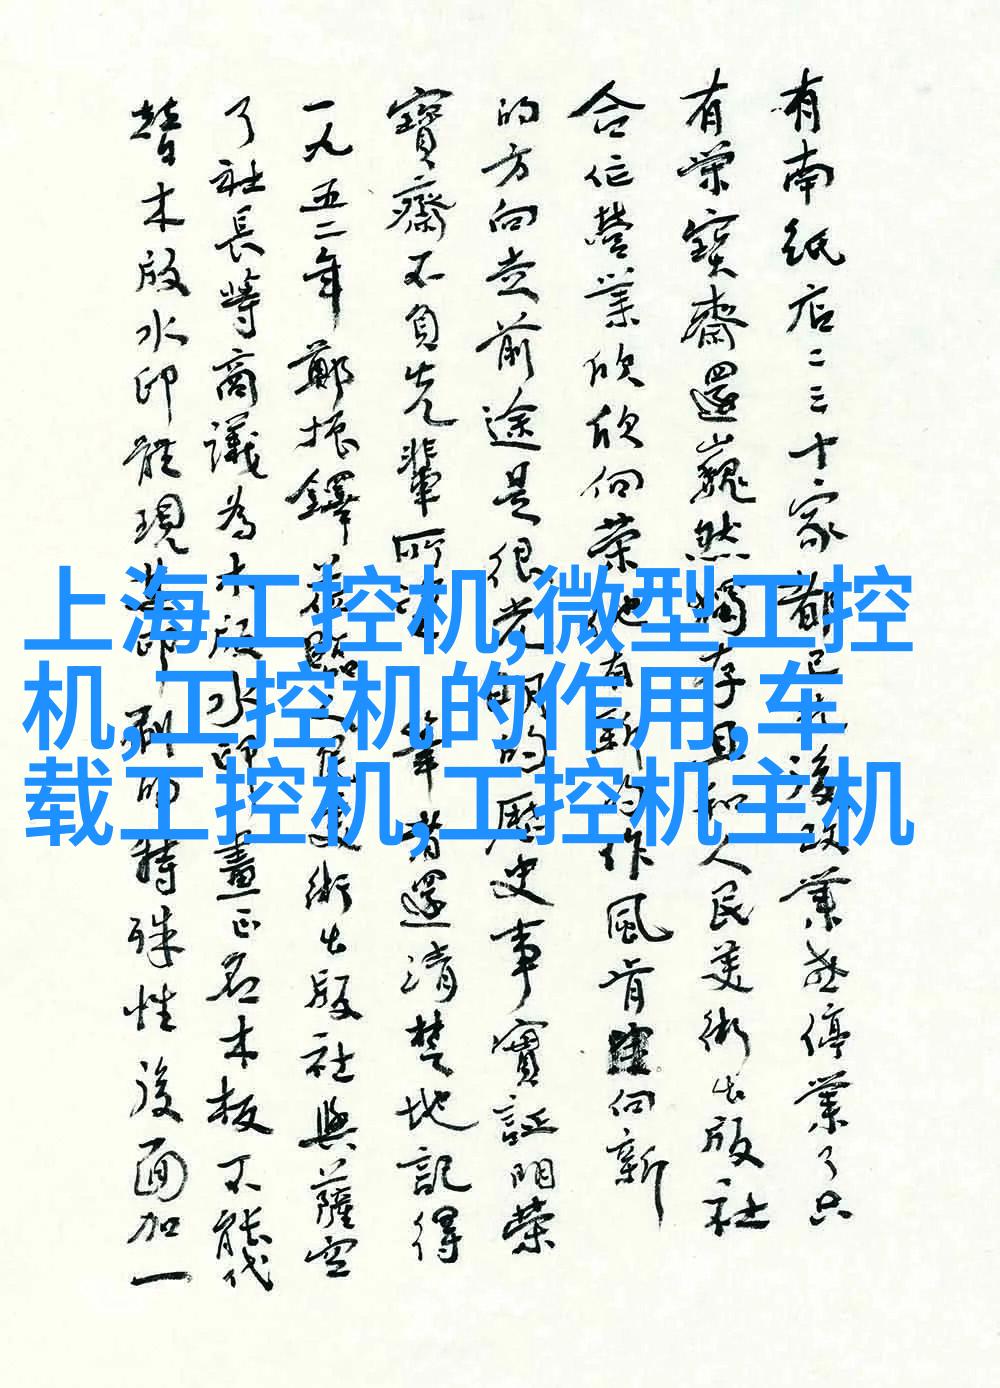 有南纸店二三十家都已先后改業或停業了只
有荣宝齋還巍然獨存且和人民美術出版社
合作營業欣欣向荣他有新的作風肯 向新
的方向走前途是很光明的歷史事實証明榮
寶齋不負先輩所 筆者還清楚地記得
一九五二年鄭振鐸 美術出版社與薩空
了社長等商議為木版水印 畫正名木板不能代
替木版水印能現 印刷的特殊性後面加一
上海工控机,微型工控
机,工控机的作用,车
载工控机,工控机主机